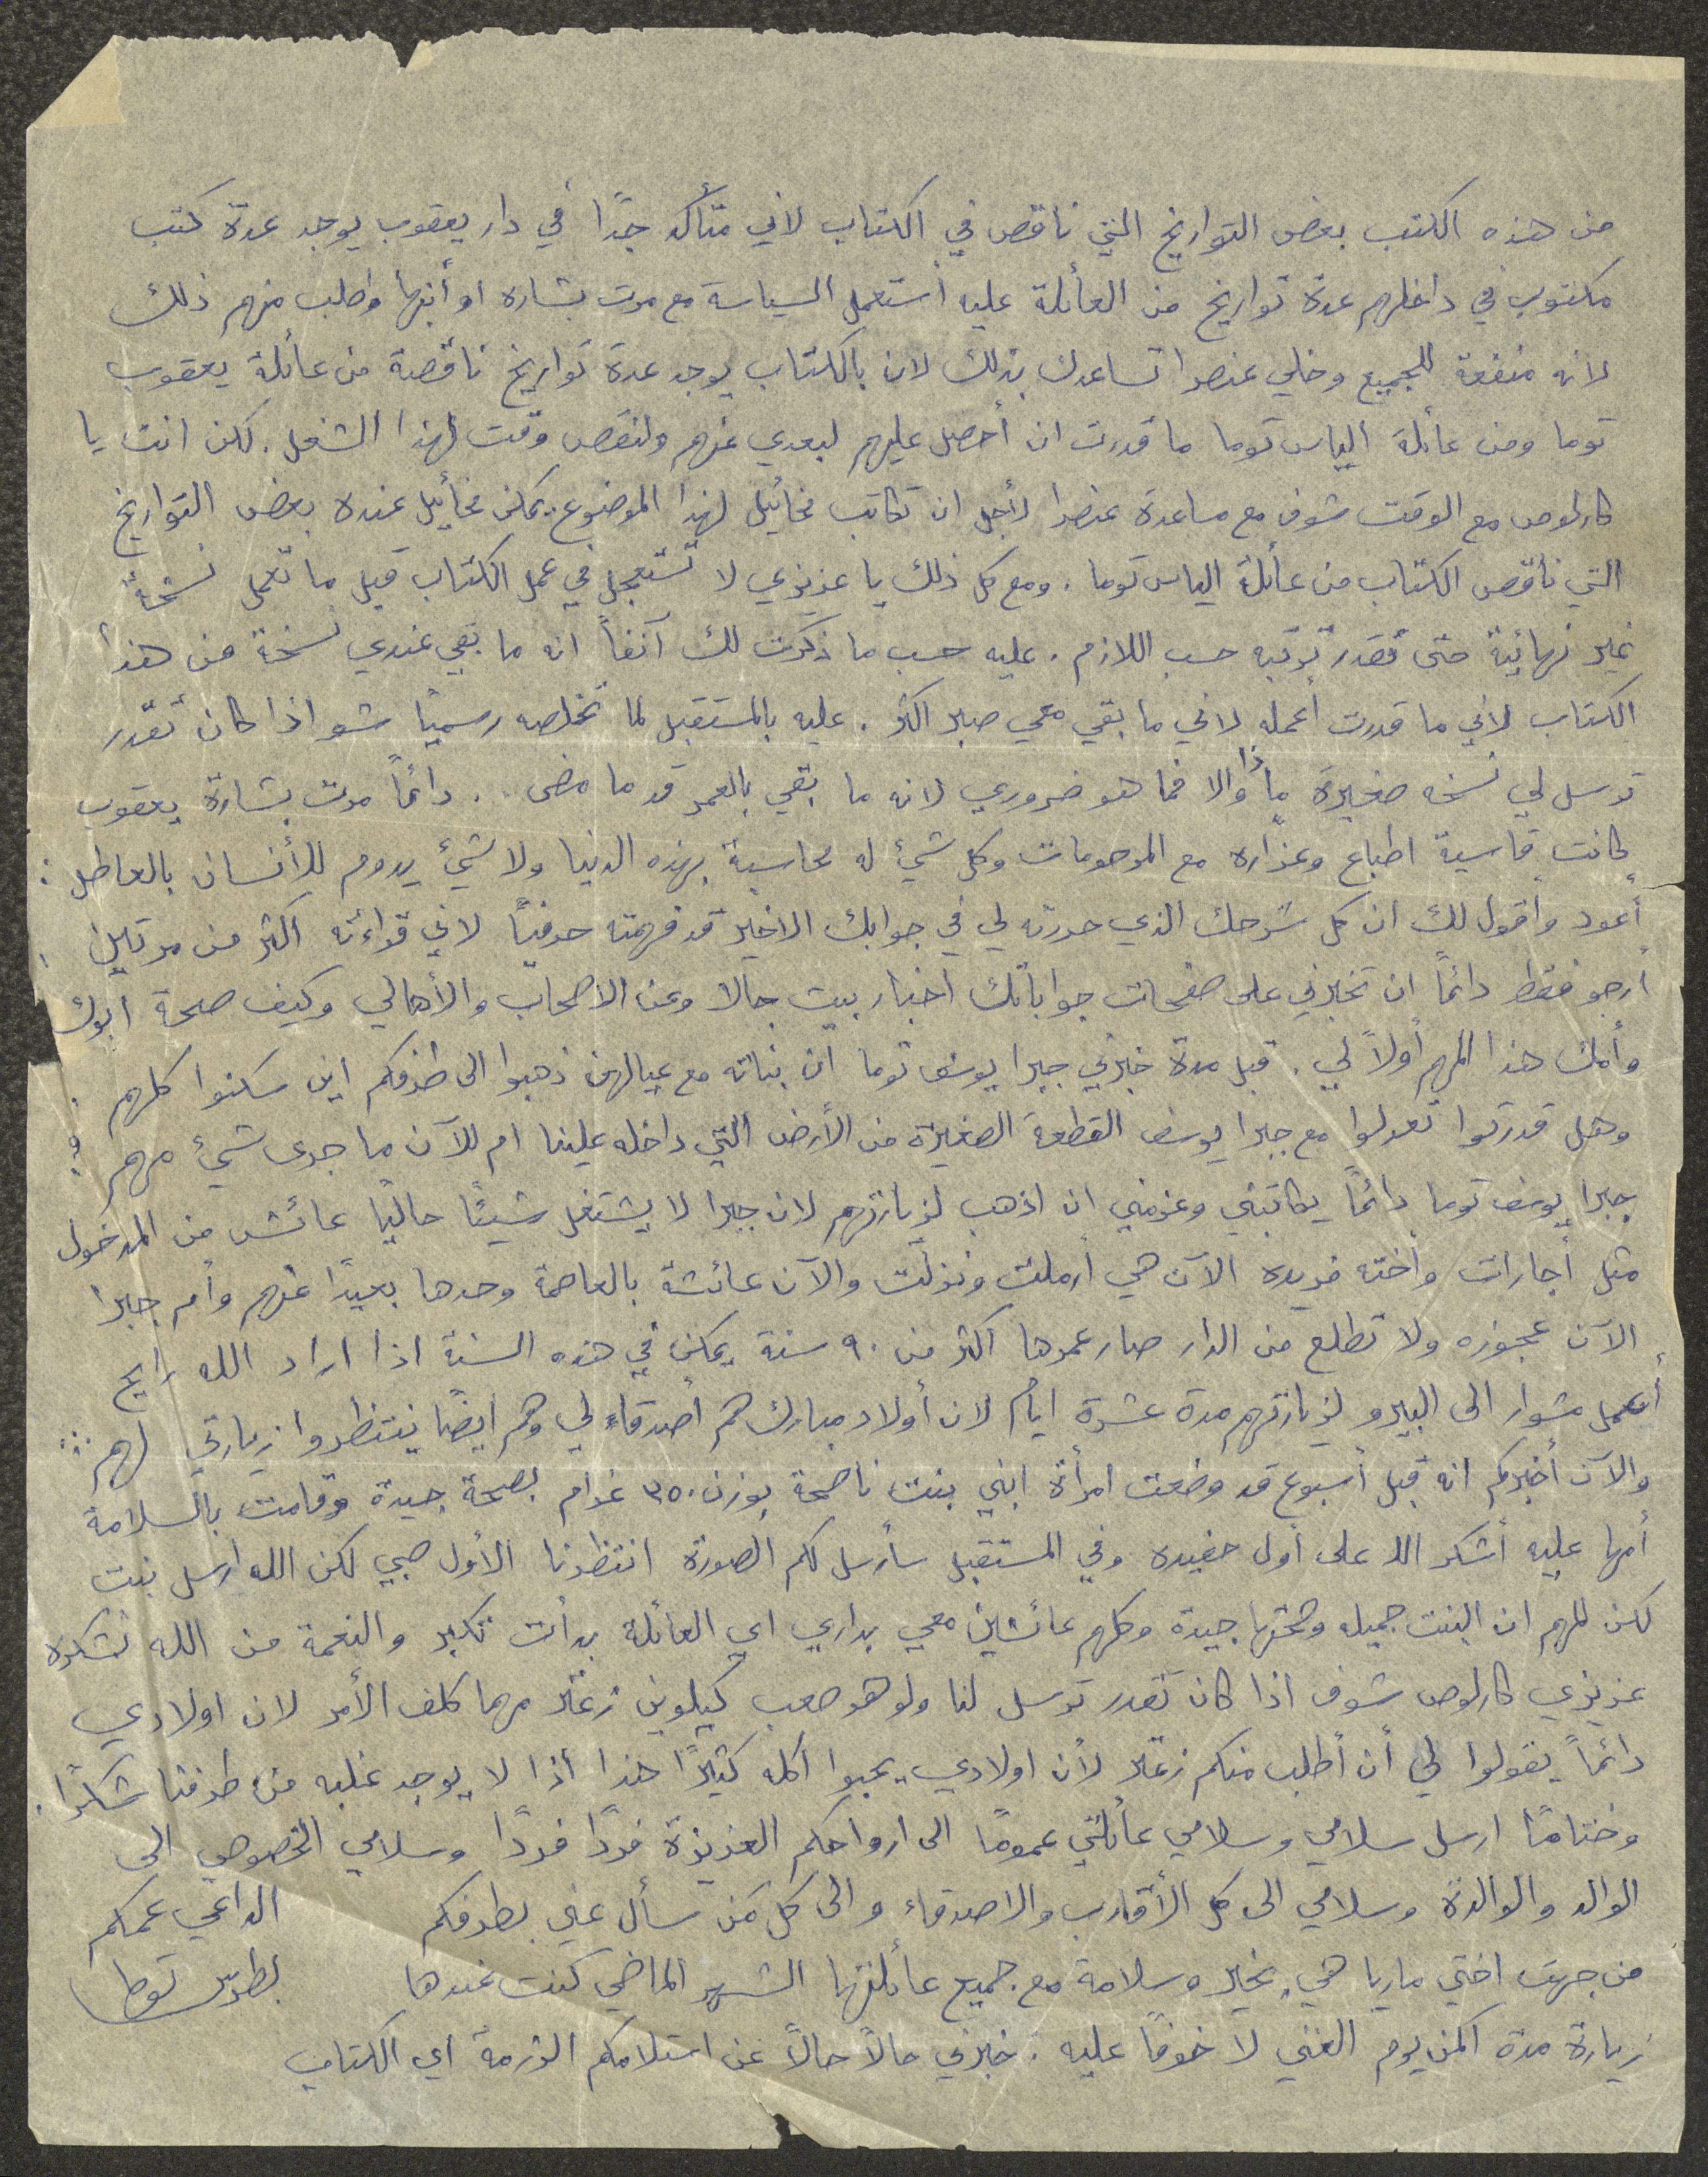 من هذه الكتب بعض التواريخ التي ناقص في الكتاب لاني متأكد جدًا في دار يعقوب يوجد عدة كتب
مكتوب في داخلهم عدة تواريخ من العائلة عليه أستعمل السياسة مع مرت بشاره او أبنها واطلب منهم ذلك
لانه منفعة للجميع وخلي عنصرا تساعدك بذلك لان بالكتاب يوجد عدة تواريخ ناقصة من عائلة يعقوب
توما ومن عائلة الياس توما ما قدرت ان أحصل عليهم لبعدي عنهم ولنقص وقت لهذا الشغل. لكن انت يا
كارلوص مع الوقت شوف مع مساعدة عنصرا لأجل ان تكاتب مخائيل لهذا الموضوع يمكن مخائيل عنده بعض التواريخ
التي ناقص الكتاب من عائلة الياس توما. ومع كل ذلك يا عزيزي لا تستعجل في عمل الكتاب قبل ما تعمل نسخة
غير نهائية حتى تقدر ترتبه حسب اللازم. عليه حسب ما ذكرت لك آنفاً انه ما بقي عندي نسخة من هذا
الكتاب لاني ما قدرت أعمله لاني ما بقي معي صبر اكثر. عليه بالمستقبل لما تخلصه رسميًا شو اذا كان تقدر
ترسل لي نسخه صغيرة والا فما هو ضروري لانه ما بقي بالعمر قد ما مضى.. دائماً مرت بشارة يعقوب
كانت قاسية اطباع وغداره مع المرحومات وكل شيئ له محاسبة بهذه الدنيا ولا شيئ يدوم للأنسان بالعاطل :
أعود وأقول لك ان كل شرحك الذي حررته لي في جوابك الاخير قد فهمته حرفيًا لاني قرأته اكثر من مرتين .
أرجو فقط دائماً ان تخبرني على صفحات جواباتك اخبار بيت جالا وعن الاصحاب والأهالي وكيف صحة ابوك
وأمك هذا المهم أولاً لي. قبل مدة خبرني جبرا يوسف توما ان بناته مع عيالهن ذهبوا الى طرفكم اين سكنوا كلهم .
وهل قدرتوا تعدلوا مع جبرا يوسف القطعة الصغيرة من الأرض التي داخله علينا ام للآن ما جرى شيئ مهم ؟
جبرا يوسف توما دائماً يكاتبني وعزمني ان اذهب لزيارتهم لان جبرا لا يشتغل شيئًا حاليًا عائش من المدخول
مثل أجارات وأخته فريده الآن هي أرملت ونزلت والآن عائشة بالعاصمة وحدها بعيدًا عنهم وأم جبرا
الآن عجوزه ولا تطلع من الدار صار عمرها اكثر من ٩٠ سنة يمكن في هذه السنة اذا اراد الله رايح
أعمل مشوار الى البيرو لزيارتهم مدة عشرة ايام لان أولاد مبارك هم أصدقاء لي وهم ايضًا ينتظروا زيارتي لهم ..
والآن أخبركم انه قبل أسبوع قد وضعت امرأة ابني بنت ناصحة بوزن ٣٥٠٠ غرام بصحة جيدة وقامت بالسلامة
أمها عليه أشكر الله على أول حفيده وفي المستقبل سأرسل لكم الصورة انتظرنا الأول صبي لكن الله ارسل بنت
لكن المهم ان البنت جميله وصحتها جيدة وكلهم عائشين معي بداري اي العائلة بدأت تكبر والنعمة من الله نشكره
عزيزي كارلوص شوف اذا كان تقدر ترسل لنا ولو هو صعب كيلوين زعتر مهما كلف الأمر لان اولادي
دائماً يقولوا لي أن أطلب منكم زعتر لأن اولادي يحبوا اكله كثيرًا هذا اذا لا يوجد غلبه من طرفنا شكرًا.
وختامًا ارسل سلامي وسلامي عائلتي عمومًا الى ارواحكم العزيزة فردًا فردًا وسلامي الخصوصي الى
الوالد والوالدة وسلامي الى كل الأقارب والاصدقاء والى كل من سأل عني بطرفكم الداعي عمكم
من جهت اختي ماريا هي بخير وسلامة مع جميع عائلتها الشهر الماضي كنت عندها بطرس توما
زيارة مدة لا خوفًا عليه : خبرني حالاً حالاً عن استلامكم الرزمة اي الكتاب